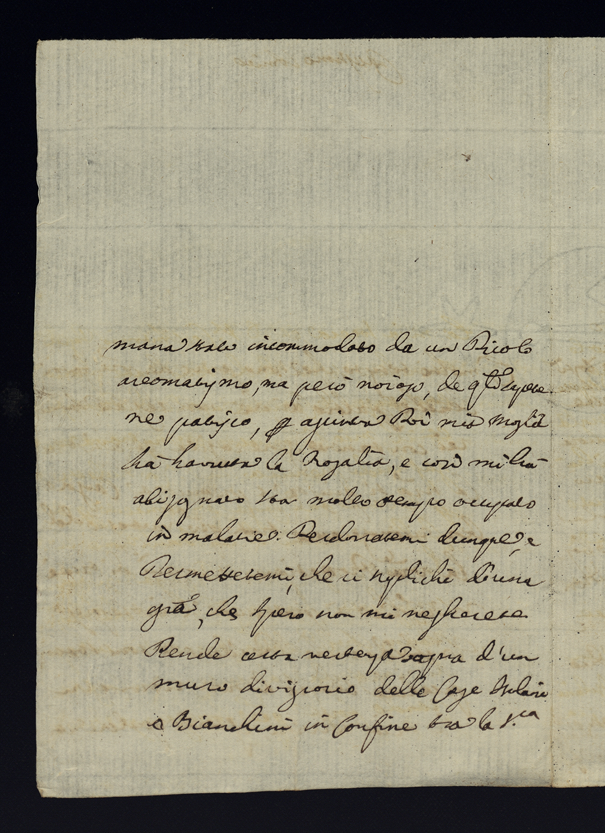 mana stato incommodato da un Picolo
reomatismo, ma però noioso, de q.ti spesse
ne patisco, giunta Poi mia Moglie
hà havuta la Rosalia, e così mi hà
abisognato star molto tempo ocupato
in malatie. Perdonatemi dunque, e
Permetetemi, che vi suplichi d'una
gra.a, che spero non mi negherete
Pende certa vertenza sopra d'un
muro divisorio delle Case
e Bianchini in Confine tra la S.ra